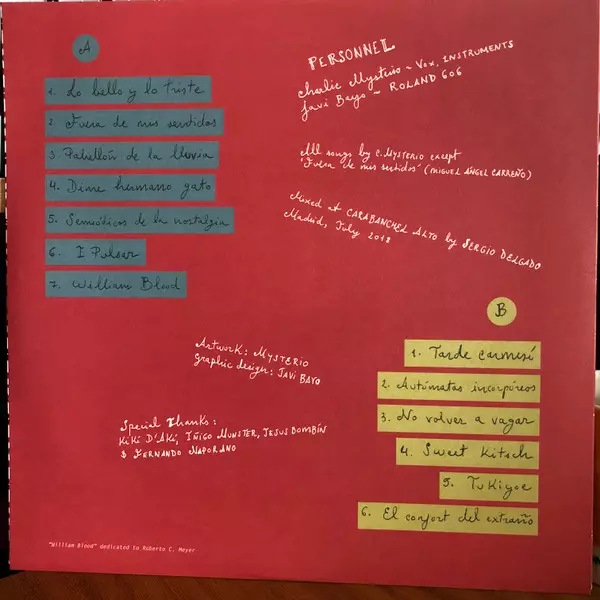 A
1. Lo bello y lo triste
2. Fuera de mis sentidos
3. Pabellón de la lluvia
4. Dime hermano gato
5. Semióticos de la nostalgia
6. I Pulsar
7. William Blood
PERSONNEL
Charlie Mysterio ~ Vox, INSTRUMENTS
Javi Bayo ~ ROLAND 606
All songs by C. MYSTERIO except
"Fuera de mis sentidos" (MIGUEL ÁNGEL CARREÑO)
Mixed at CARABANCHEL ALTO by SERGIO DELGADO
Madrid, July 2018
B
1. Tarde carmesí
2. Autómatas incorpóreos
3. No volver a vagar
4. Sweet Kitsch
5. Tukiyoe
6. El confort del extraño
Artwork: MYSTERIO
Graphic design: JAVI BAYO
Special Thanks:
KIKI D'AKI, IÑIGO MUNSTER, JESUS BOMBÍN
& FERNANDO NAPORANO
"William Blood" dedicated to Roberto C. Meyer